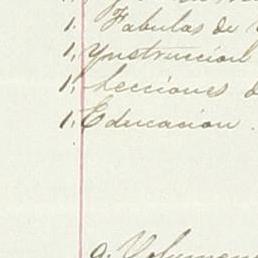 1, Fabulas de
1, Ynstruccion
1, Lecciones d
1, Educacion.
9. Volumen